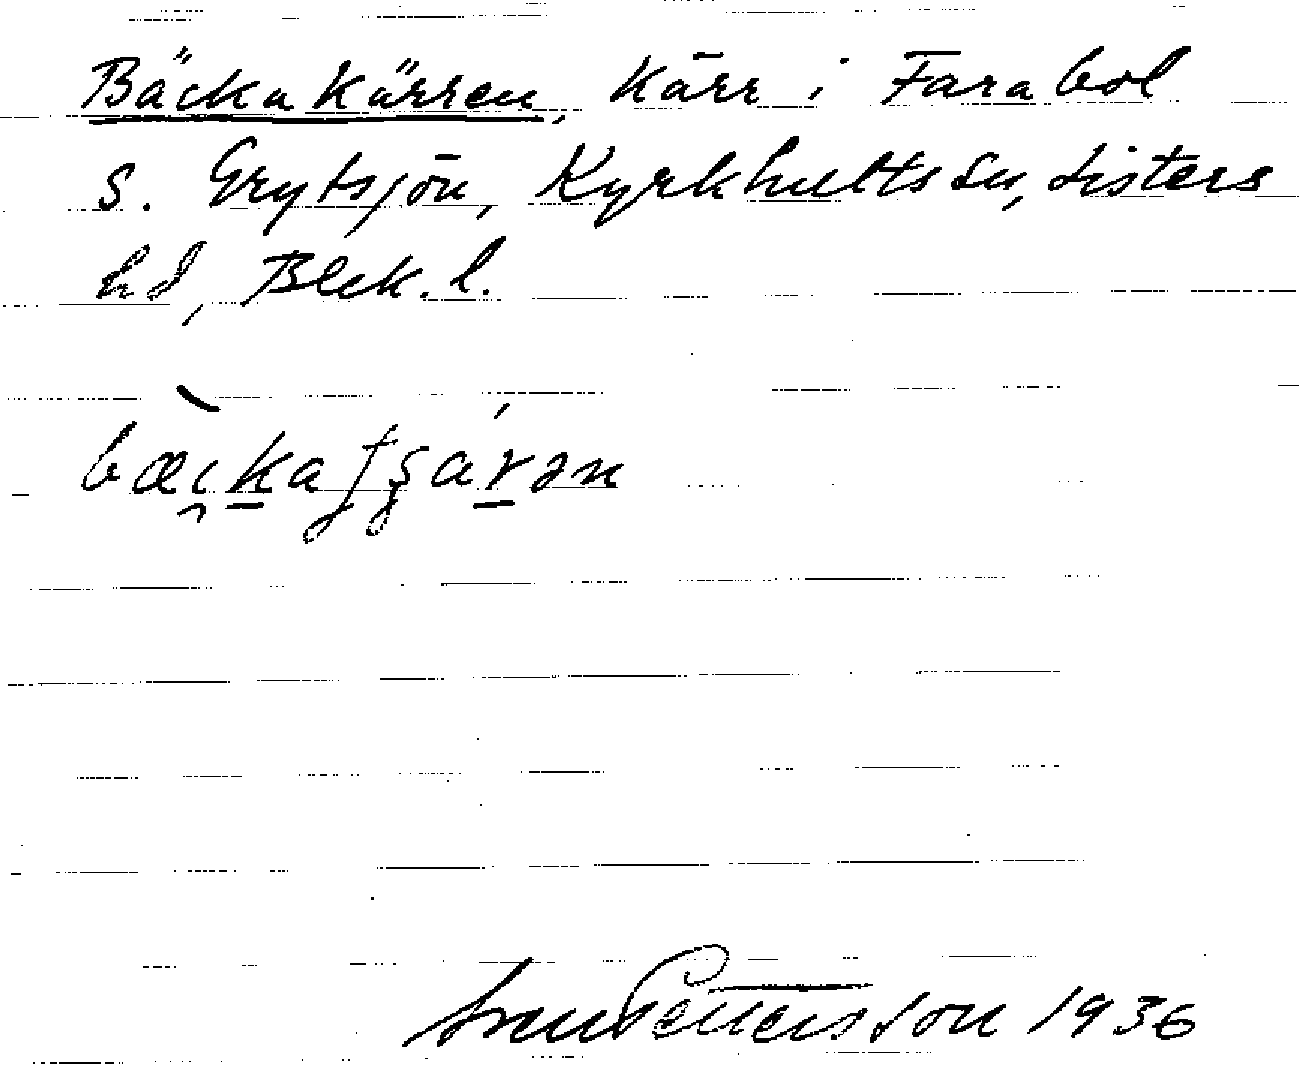 Bäckakärren, Kärr i Farabol
S. Grytsjön, Kyrkhults sn, Listers
hd, Blek. l.
Sven Pettersson 1936